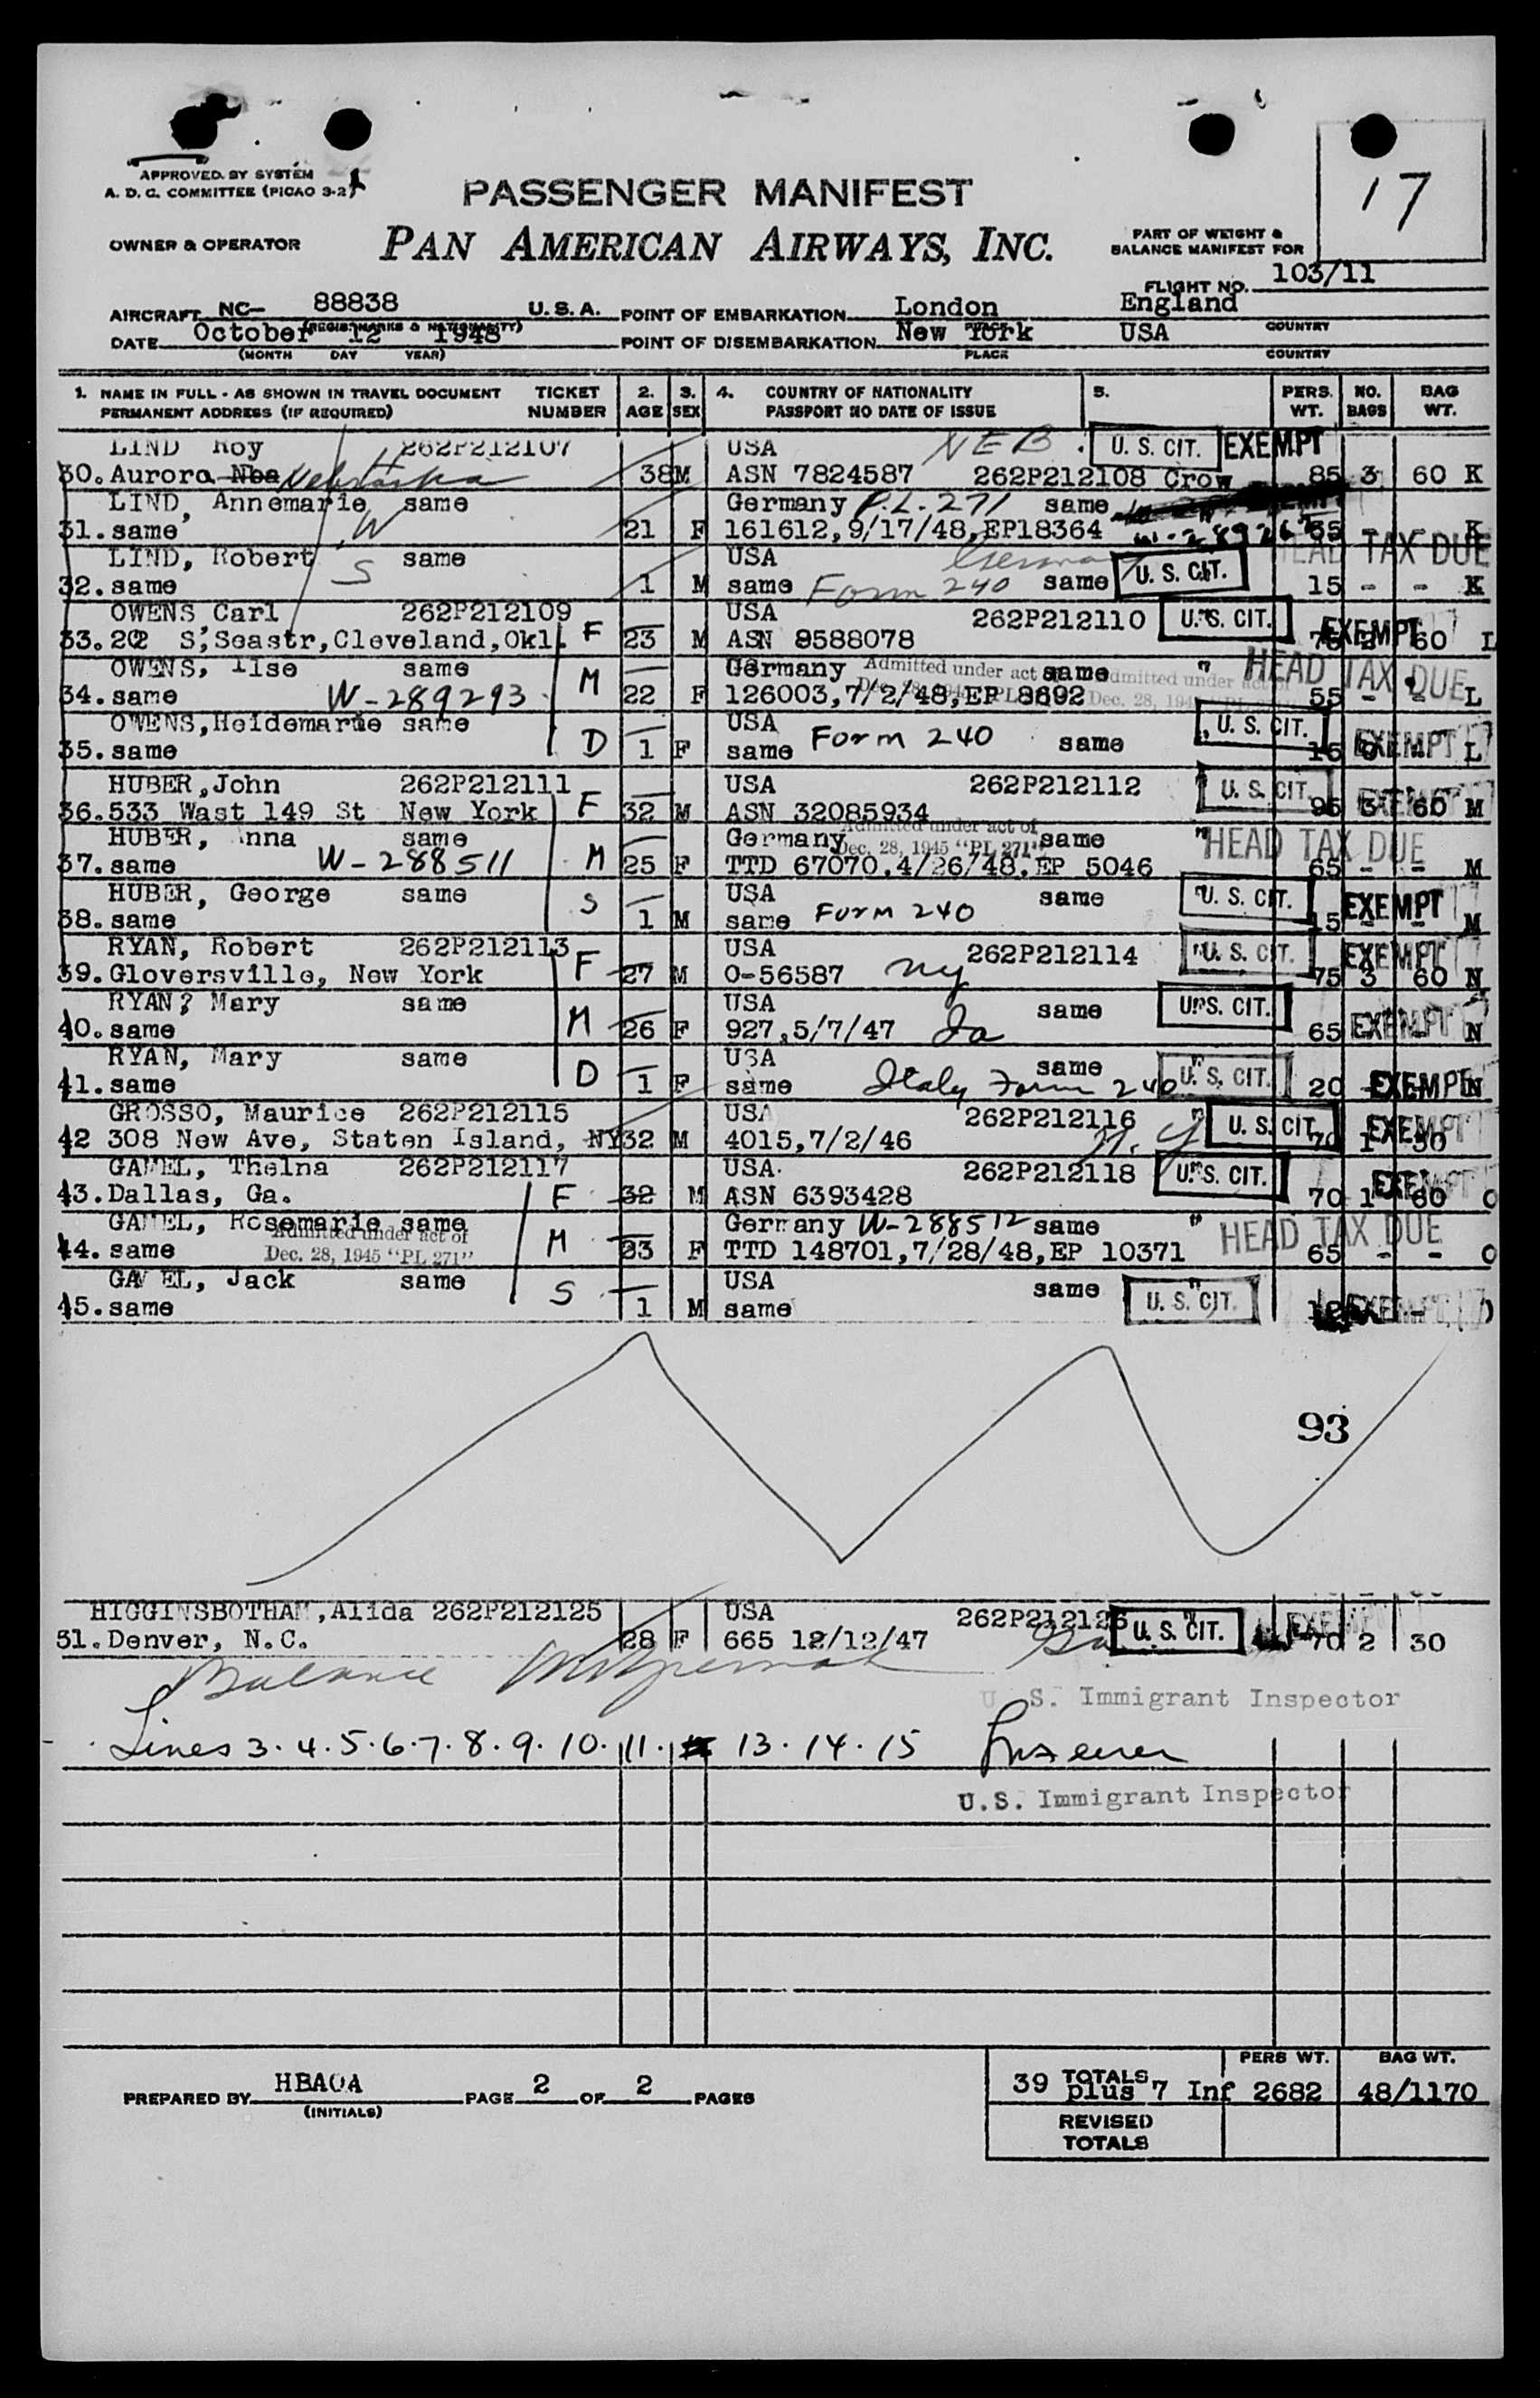 APPROVED BY SYSTEM
A. D. C. COMMITTEE (PICAO 3-2)
PASSENGER MANIFEST
17
OWNER & OPERATOR
PAN AMERICAN AIRWAYS, INC.
PART OF WEIGHT &
BALANCE MANIFEST FOR
FLIGHT NO. 103/11
AIRCRAFT NC- 88838 U.S.A. POINT OF EMBARKATION London England
(REGIS. MARKS & NATIONALITY) PLACE COUNTRY
DATE October 12 1948 POINT OF DISEMBARKATION New York USA
(MONTH DAY YEAR) PLACE COUNTRY
1. NAME IN FULL - AS SHOWN IN TRAVEL DOCUMENT TICKET 2. 3. 4. COUNTRY OF NATIONALITY 5. PERS. NO. BAG
PERMANENT ADDRESS (IF REQUIRED) NUMBER AGE SEX PASSPORT NO DATE OF ISSUE WT. BAGS WT.
LIND Roy 262P212107 USA NEB. U. S. CIT. EXEMPT
30. Aurora Nea Nebraska 38 M ASN 7824587 262P212108 Crow 85 3 60 K
LIND, Annemarie same Germany P.L. 271 same
31. same W 21 F 161612,9/17/48,EP18364 - - K
LIND, Robert same USA Germany HEAD TAX DUE
32. same S 1 M same Form 240 same U. S. CIT. 15 - - K
OWENS, Carl 262P212109 USA 262P212110 U. S. CIT. EXEMPT
33. 202 S,Seastr,Cleveland,Okl. F 23 M ASN 8588078 60 L
OWENS, Ilse same Germany Admitted under act of same Admitted under act of " HEAD TAX DUE
34. same W-289293 M 22 F 126003,7/2/48,EP 8692 Dec. 28, 1945 55 - - L
OWENS,Heidemarie same USA U. S. CIT.
35. same D 1 F same Form 240 same 15 EXEMPT L
HUBER,John 262P212111 USA 262P212112 U. S. CIT.
36. 533 Wast 149 St New York F 32 M ASN 32085934 95 3 EXEMPT 60 M
HUBER, Anna same Germany Admitted under act of same " HEAD TAX DUE
37. same W-288511 M 25 F TTD 67070,4/26/48,EP 5046 Dec. 28, 1945 "PL 271" 65 - - M
HUBER, George same USA same U. S. CIT.
38. same S 1 M same Form 240 15 EXEMPT - - M
RYAN, Robert 262P212113 USA 262P212114 U. S. CIT. EXEMPT
39. Gloversville, New York F 27 M O-56587 NY 75 3 60 N
RYAN, Mary same USA same U. S. CIT.
40. same M 26 F 927,5/7/47 Ia 65 EXEMPT N
RYAN, Mary same USA same U. S. CIT.
41. same D 1 F same Italy Form 240 20 EXEMPT N
GROSSO, Maurice 262P212115 USA 262P212116 " U. S. CIT.
42 308 New Ave, Staten Island, NY 32 M 4015,7/2/46 N.Y 70 1 EXEMPT 30
GAMEL, Thelna 262P212117 USA 262P212118 U. S. CIT.
43. Dallas, Ga. F 32 M ASN 6393428 70 1 EXEMPT 60 O
GAMEL, Rosemarie same Germany W-288512 same " HEAD TAX DUE
44. same Admitted under act of Dec. 28, 1945 "PL 271" M 23 F TTD 148701,7/28/48,EP 10371 65 - - O
GAMEL, Jack same USA same U. S. CIT.
45. same S 1 M same EXEMPT - O
93
HIGGINSBOTHAM,Alida 262P212125 USA 262P212126 U. S. CIT. EXEMPT
31. Denver, N.C. 28 F 665 12/12/47 70 2 30
Balance
U. S. Immigrant Inspector
Lines 3.4.5.6.7.8.9.10.11. 13.14.15
U.S. Immigrant Inspector
PERS WT. BAG WT.
PREPARED BY HBAOA PAGE 2 OF 2 PAGES
(INITIALS)
39 TOTALS plus 7 Inf 2682 48/1170
REVISED
TOTALS